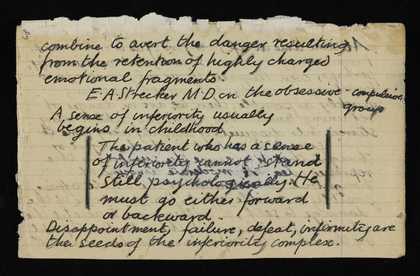 combine to avert the danger resulting
from the retention of highly charged
emotional fragments.
E. A. Strecker M.D. on the obsessive-compulsive
group
A sense of inferiority usually
begins in childhood.
The patient who has a sense
of inferiority cannot stand
still psychologically. He
must go either forward
or backward.
Disappointment, failure, defeat, infirmity are
the seeds of the inferiority complex.